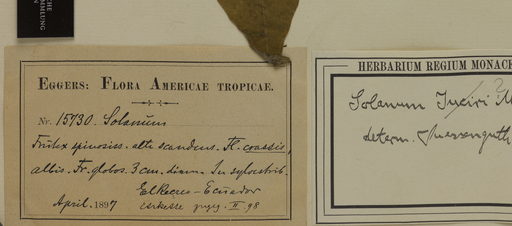 CHE
MMLUNG
EN
EGGERS: FLORA AMERICAE TROPICAE.
Nr. 15730. Solanum
Frutex spinosus. alte scandens. Fl. crassis,
albis. Fr. globos. 3 cm. diam. In sylvestrib.
El Recreo - Ecuador
April. 1897 II. 98
HERBARIUM REGIUM MONAC
Solanum
determ.